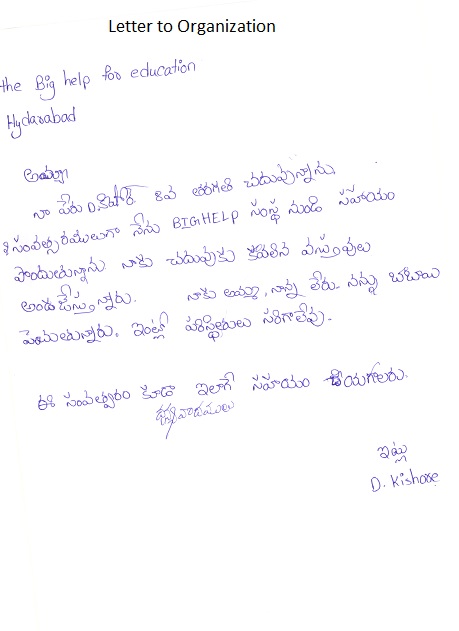 Letter to Organization
the Big help for education
Hydarabad
అయ్యా
నా పేరు D.కిషోర్. 8వ తరగతి చదువున్నాను.
సంవత్సరములుగా నేను BIGHELP సంస్థ నుండి సహాయం
పొందుతున్నాను నాకు చదువుకు కావలిసిన వస్తువులు
అందచేస్తున్నారు. నాకు అమ్మా, నాన్న లేరు. నన్ను బాబాయి
పెంచుతున్నారు. ఇంట్లో పరిస్థితులు సరిగాలేవు.
ఈ సంవత్సరం కూడా ఇలాగే సహాయం చేయగలరు.
ధన్యవాదములు
ఇట్లు
D. Kishore